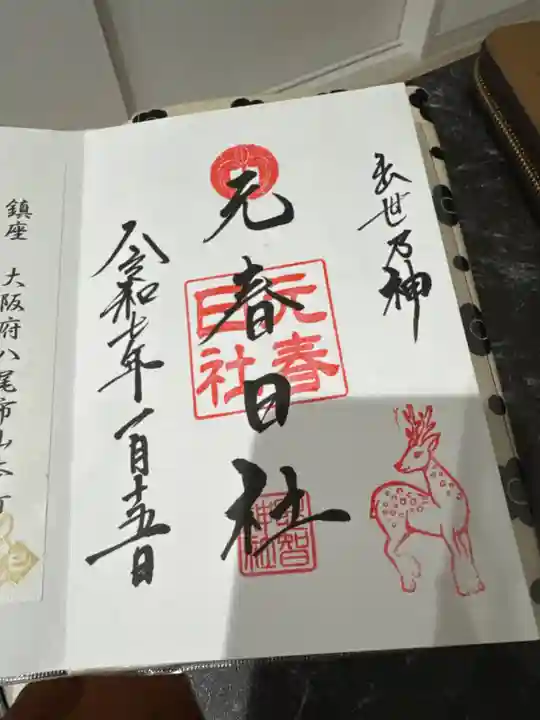 出世乃神
元春日社
元春日社
令和七年一月十五日
鎮座 大阪府八尾市山本町